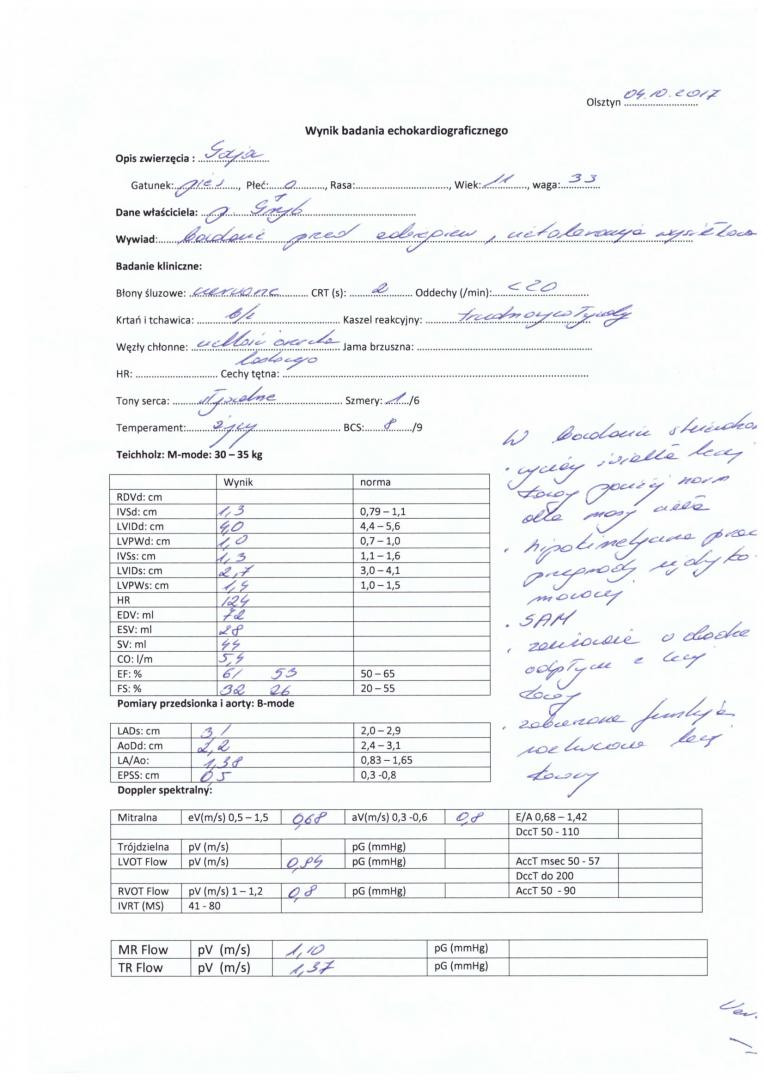 Olsztyn 04.10.2017
Wynik badania echokardiograficznego
Opis zwierzęcia : Gaja
Gatunek: pies, Płeć: , Rasa: , Wiek: 11, waga: 33
Dane właściciela: p. Grzyb
Wywiad: badanie przed zabiegiem, nietolerancja wysiłkowa
Badanie kliniczne:
Błony śluzowe: CRT (s): 2 Oddechy (/min): <20
Krtań i tchawica: b/z Kaszel reakcyjny: trudnowywoływalny
Węzły chłonne: Jama brzuszna:
HR: Cechy tętna:
Tony serca: słyszalne Szmery: 1 /6
Temperament: żywy BCS: 8 /9
Teichholz: M-mode: 30 – 35 kg
Wynik norma
RDVd: cm
IVSd: cm 1,3 0,79 – 1,1
LVIDd: cm 4,0 4,4 – 5,6
LVPWd: cm 1,0 0,7 – 1,0
IVSs: cm 1,3 1,1 – 1,6
LVIDs: cm 2,7 3,0 – 4,1
LVPWs: cm 1,4 1,0 – 1,5
HR 124
EDV: ml 72
ESV: ml 28
SV: ml 44
CO: l/m 5,4
EF: % 61 53 50 – 65
FS: % 32 26 20 – 55
Pomiary przedsionka i aorty: B-mode
LADs: cm 3,1 2,0 – 2,9
AoDd: cm 2,2 2,4 – 3,1
LA/Ao: 1,38 0,83 – 1,65
EPSS: cm 0,5 0,3 -0,8
W badaniu
światła lewej
komory poniżej norm
dla masy ciała
. hipokinetyczna
przegrody
. SAM
. w drodze
odpływu z lewej
komory
. zaburzona funkcja
rozkurczowa lewej
komory
Doppler spektralny:
Mitralna eV(m/s) 0,5 – 1,5 0,68 aV(m/s) 0,3 -0,6 0,8 E/A 0,68 – 1,42
DccT 50 - 110
Trójdzielna pV (m/s) pG (mmHg)
LVOT Flow pV (m/s) 0,84 pG (mmHg) AccT msec 50 - 57
DccT do 200
RVOT Flow pV (m/s) 1 – 1,2 0,8 pG (mmHg) AccT 50 - 90
IVRT (MS) 41 - 80
MR Flow pV (m/s) 1,10 pG (mmHg)
TR Flow pV (m/s) 1,37 pG (mmHg)